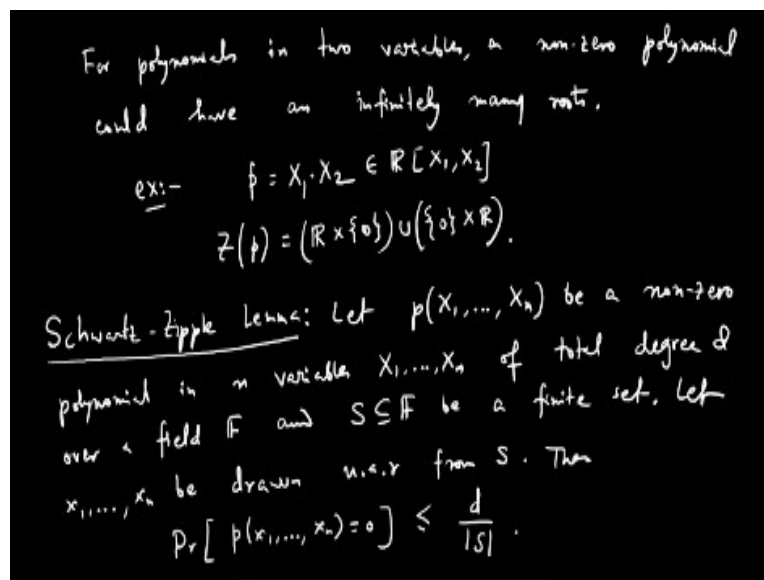 For polynomials in two variables, a non-zero polynomial
could have an infinitely many roots.
ex:- p = X₁·X₂ ∈ ℝ[X₁,X₂]
Z(p) = (ℝ×{0})∪({0}×ℝ).
Schwartz-Zipple Lemma: Let p(X₁,..., Xₙ) be a non-zero
polynomial in n variables X₁,...,Xₙ of total degree d
over a field 𝔽 and S⊆𝔽 be a finite set. Let
x₁,..., xₙ be drawn u.a.r from S. Then
Pr[ p(x₁,..., xₙ)=0 ] ≤ d/|S| .